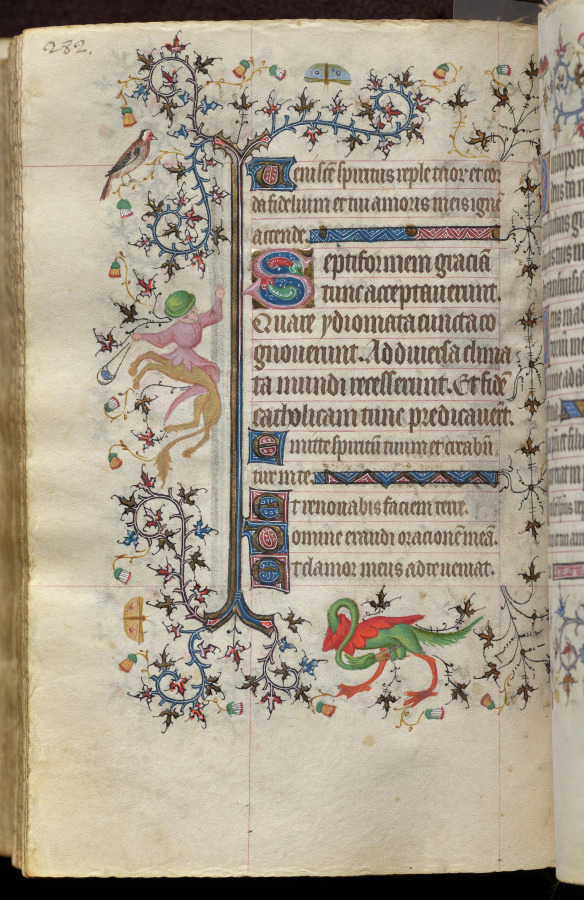 282.
Veni sc̄e spiritus reple tuor et cor
da fidelium et tui amoris in eis igne
accende.
Septiformem graciā
tunc acceptauerunt.
Quare ydiomata cuncta co
gnouerunt. Ad diuersa clima
ta mundi recesserunt. Et fidē
catholicam tunc predicauerūt.
Emitte spiritū tuum et creabūn
tur in te.
Et renouabis faciem terre.
Domine exaudi orationē meā.
Et clamor meus ad te ueniat.